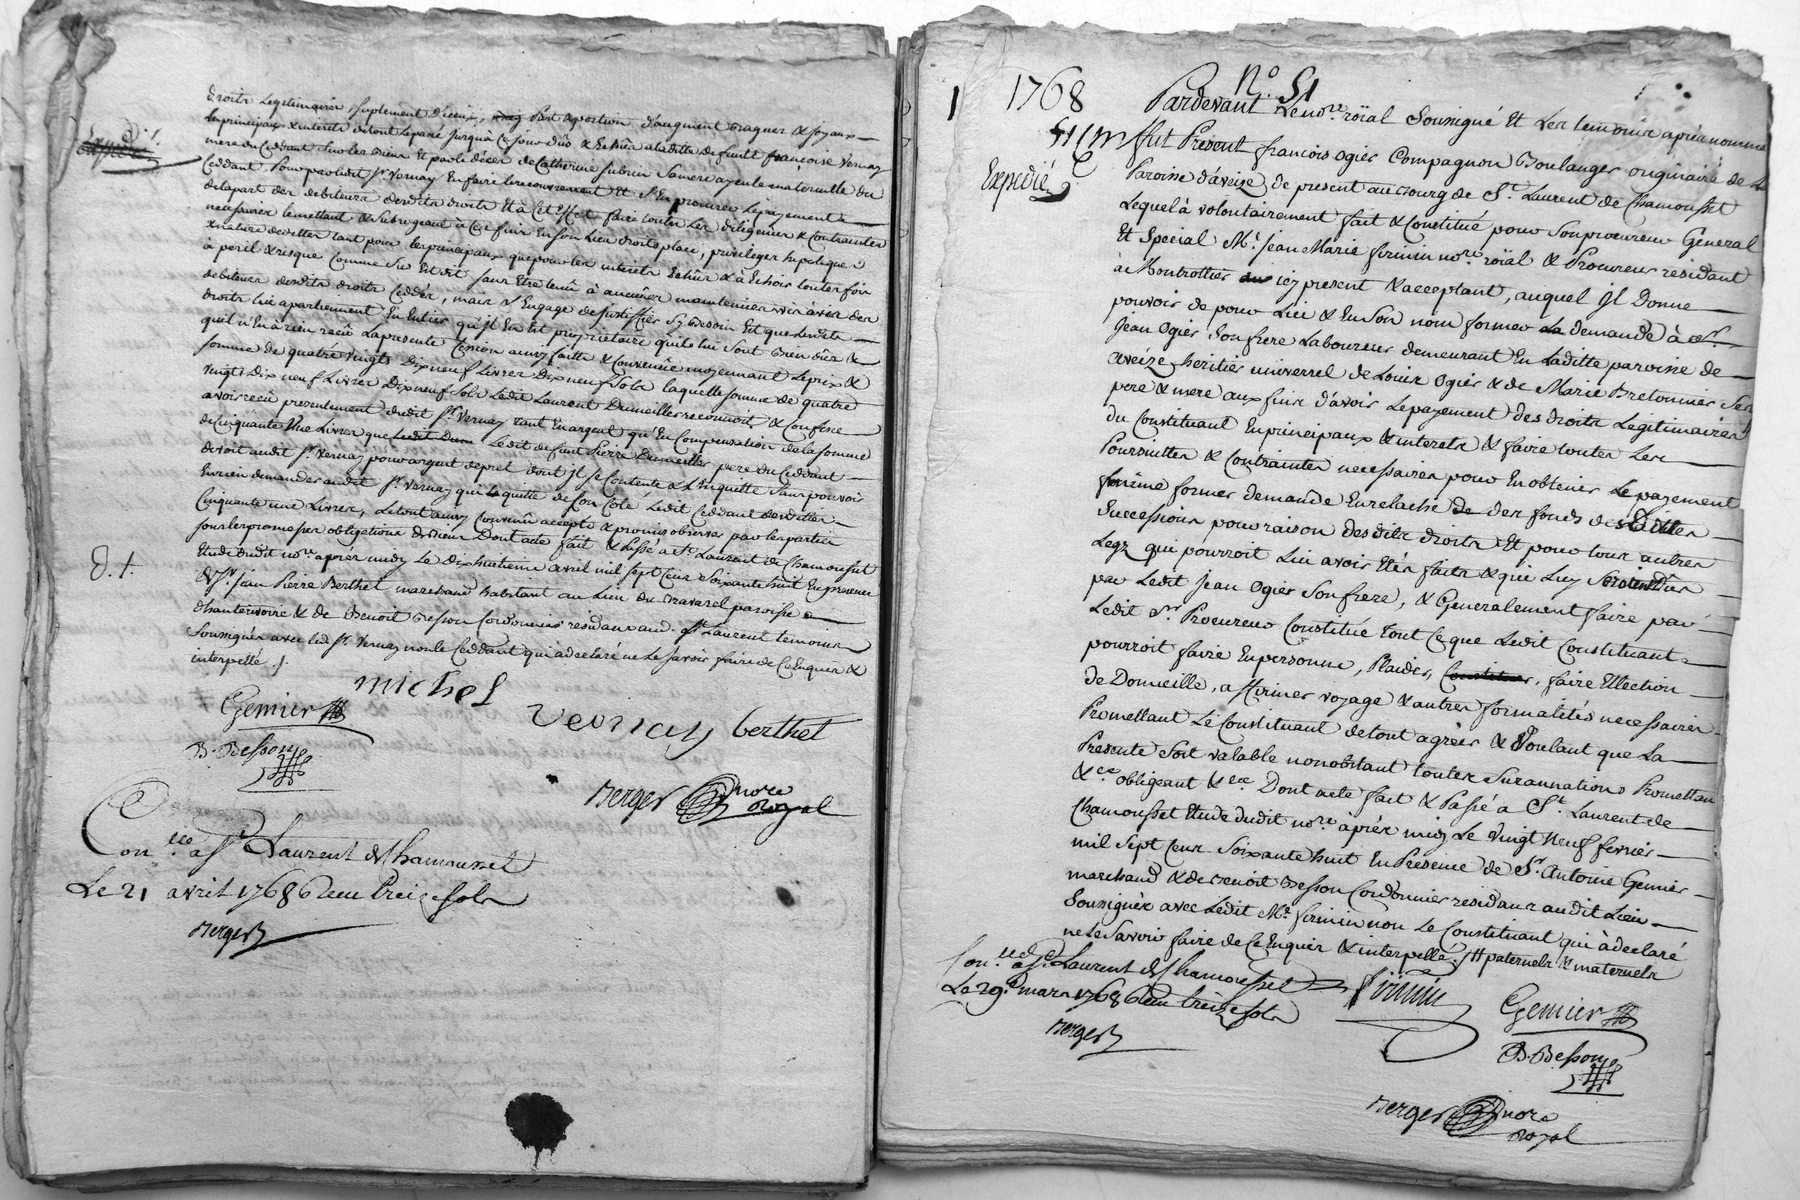 droits Legitimaires, suplement d'iceux, Part & portion d'augment bagues & joyaux
en principaux & interets de tout Le passé jusqu'à Ce jour dûs & Echûs a laditte deffunte françoise Vernay
mere du Ceddant sur les biens Et par le décès de Catherine subrin sa mere ayeule maternelle du
Ceddant Pour par ledit Sr. Vernay En faire Le recouvrement Et s'En procurer Le payement
de la part des debiteurs desdits droits Et à Cet effet faire toutes Les diligences & Contraintes
necessaires Le mettant & Subrogeant à Ces fins En son Lieu droit & place, privileges hipoteques
& nature de dettes tant pour les principaux que pour les interets Echûs & à Echoir toutes fois
à peril & risque Comme Sr Et dit sans Etre tenû à aucune maintenüe vis à vis des
debiteurs desdits droits Ceddés, mais s'Engage de justiffier sy besoin Est que Lesdits
droits lui apartiennent En Entier qu'jl En Est proprietaire qu'ils lui sont bien dûs &
qu'il n'En à rien recû La presente Cession ainsy faitte & Convenüe moyennant Le prix &
somme de quatre vingts Dix neuf Livres Dix neuf Sols laquelle somme de quatre
vingts Dix neuf Livres Dix neuf Sols Ledit Laurent Dumeilles reconnoit & Confesse
avoir recû presentement dudit Sr. Vernay tant En argent qu'En Compensation de la somme
de Cinquante Une Livres que Ledit deffunt Pierre Dumeilles pere du Ceddant
devoit audit Sr. Vernay pour argent de pret dont jl se Contente & L'En quitte sans pouvoir
En rien demander audit Sr. Vernay qui Le quitte de son Coté Ledit Ceddant desdittes
Cinquante une Livres, Le tout ainsy Convenû accepté & promis observer par les parties
sous les promesses obligations de biens Dont acte fait & Passé a St. Laurent de Chamousset
Etude dudit nore. après midy Le dix huitieme avril mil sept Cens Soixante huit En presence
de Sr. jean Pierre Berthet marchand habitant au Lieu du travarel paroisse
d'hauterivoire & de Benoit Besson Cordonnier residant aud. St. Laurent temoins
Soussignés avec led. Sr. Vernay non le Ceddant qui a declaré ne Le sçavoir faire de Ce Enquis &
interpellé ./.
Expedié
d. t.
michel
Gemier
vernay berthet
B. Besson
Berger nore
Royal
Con.lle a St. Laurent de Chamousset
Le 21 avril 1768 Reçu treize sols
Berger
1 1768 N.o 51
Pardevant Le nore. roïal Soussigné Et Les temoins après nommés
fut Present françois ogier Compagnon Boulanger originaire de La
Expedié
Paroisse d'aveize de present au bourg de St. Laurent de Chamousset
Lequel à volontairement fait & Constitué pour son procureur General
Et Special Me. jean Marie firmin nore. roïal & Procureur residant
à Montrottier icy present & acceptant, auquel jl Donne
pouvoir de pour Lui & En Son nom former La demande à Sr.
Jean ogier son frere Laboureur demeurant En Laditte paroisse de
aveize heritier universel de Louis ogier & de Marie Bretonnier Ses
pere & mere aux fins d'avoir Le payement des droits Legitimaires
du Constituant En principaux & interets & faire toutes Les
Poursuittes & Contraintes necessaires pour En obtenir Le payement
former demande En relache de des fonds desdittes
Successions pour raison desdits droits Et pour tous autres
Legs qui pourroit Lui avoir Etés faits & qui Luy Seroient dûs
par Ledit jean ogier son frere, & Generalement faire par
Ledit Sr. Procureur Constitué tout Ce que Ledit Constituant
pourroit faire En personne, Plaider, faire Ellection
de Domicille, affirmer voyage & autres formalités necessaires
Promettant Le Constituant de tout agréer & Voulant que La
Presente Soit valable nonobstant toutes Surannations Promettant
&ce. obligeant &ce. Dont acte fait & Passé a St. Laurent de
Chamousset Etude dudit nore. après midy Le vingt Neuf fevrier
mil Sept Cens Soixante huit En Presence de Sr. Antoine Gemier
marchand & de Benoit Besson Cordonnier residants audit Lieu
Soussignés avec Ledit Me. firmin non Le Constituant qui à declaré
ne Le Savoir faire de Ce Enquis & interpellé./. # paternels & maternels
Con.llé a St. Laurent de Chamousset
Le 29e. mars 1768 Reçu treize sols
firmin
Gemier
Berger
B. Besson
Berger nore
Royal